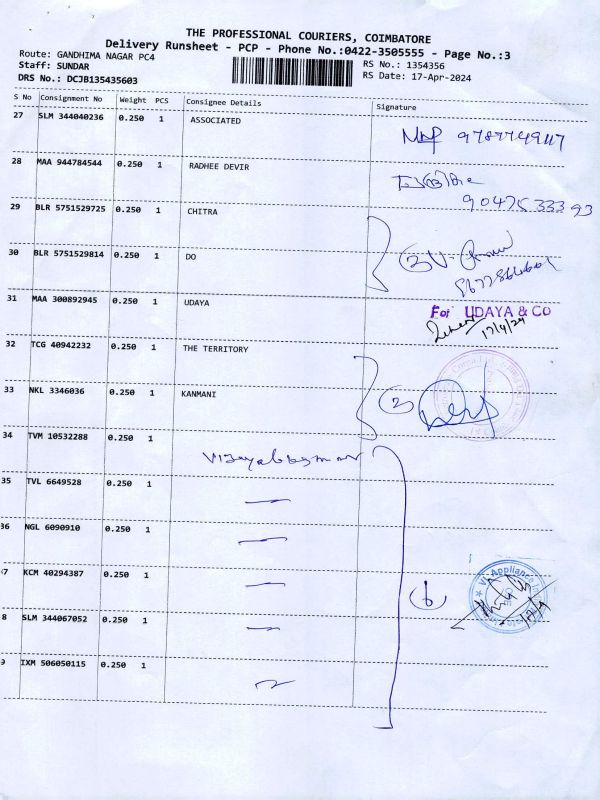 THE PROFESSIONAL COURIERS, COIMBATORE
Delivery Runsheet - PCP - Phone No.:0422-3505555 - Page No.:3
Route: GANDHIMA NAGAR PC4
RS No.: 1354356
Staff: SUNDAR
RS Date: 17-Apr-2024
DRS No.: DCJB135435603
S No Consignment No Weight PCS Consignee Details Signature
27 SLM 344040236 0.250 1 ASSOCIATED
28 MAA 944784544 0.250 1 RADHEE DEVIR
29 BLR 5751529725 0.250 1 CHITRA
30 BLR 5751529814 0.250 1 DO
31 MAA 300892945 0.250 1 UDAYA
For UDAYA & CO
17/4/24
32 TCG 40942232 0.250 1 THE TERRITORY
33 NKL 3346036 0.250 1 KANMANI
34 TVM 10532288 0.250 1
35 TVL 6649528 0.250 1
36 NGL 6090910 0.250 1
7 KCM 40294387 0.250 1
8 SLM 344067052 0.250 1
9 IXM 506050115 0.250 1